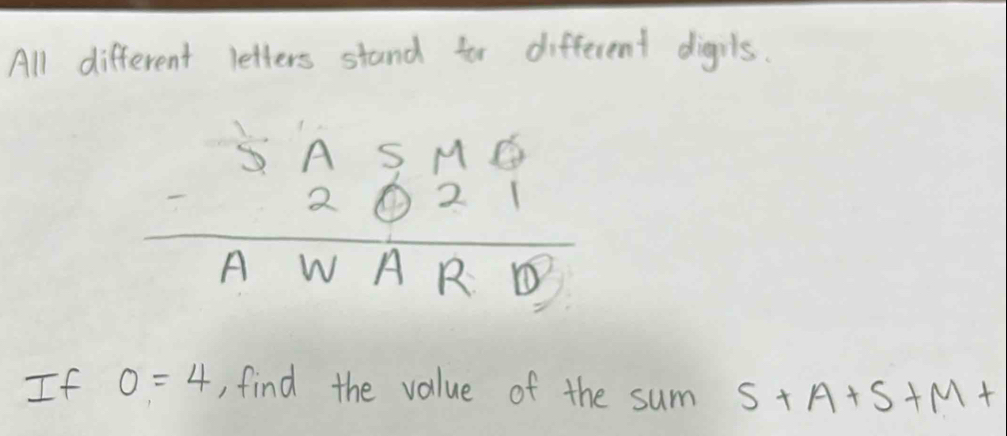 All different letters stand for different digits.
S A S M O
- 2 0 2 1
A W A R D
If O = 4, find the value of the sum S + A + S + M +